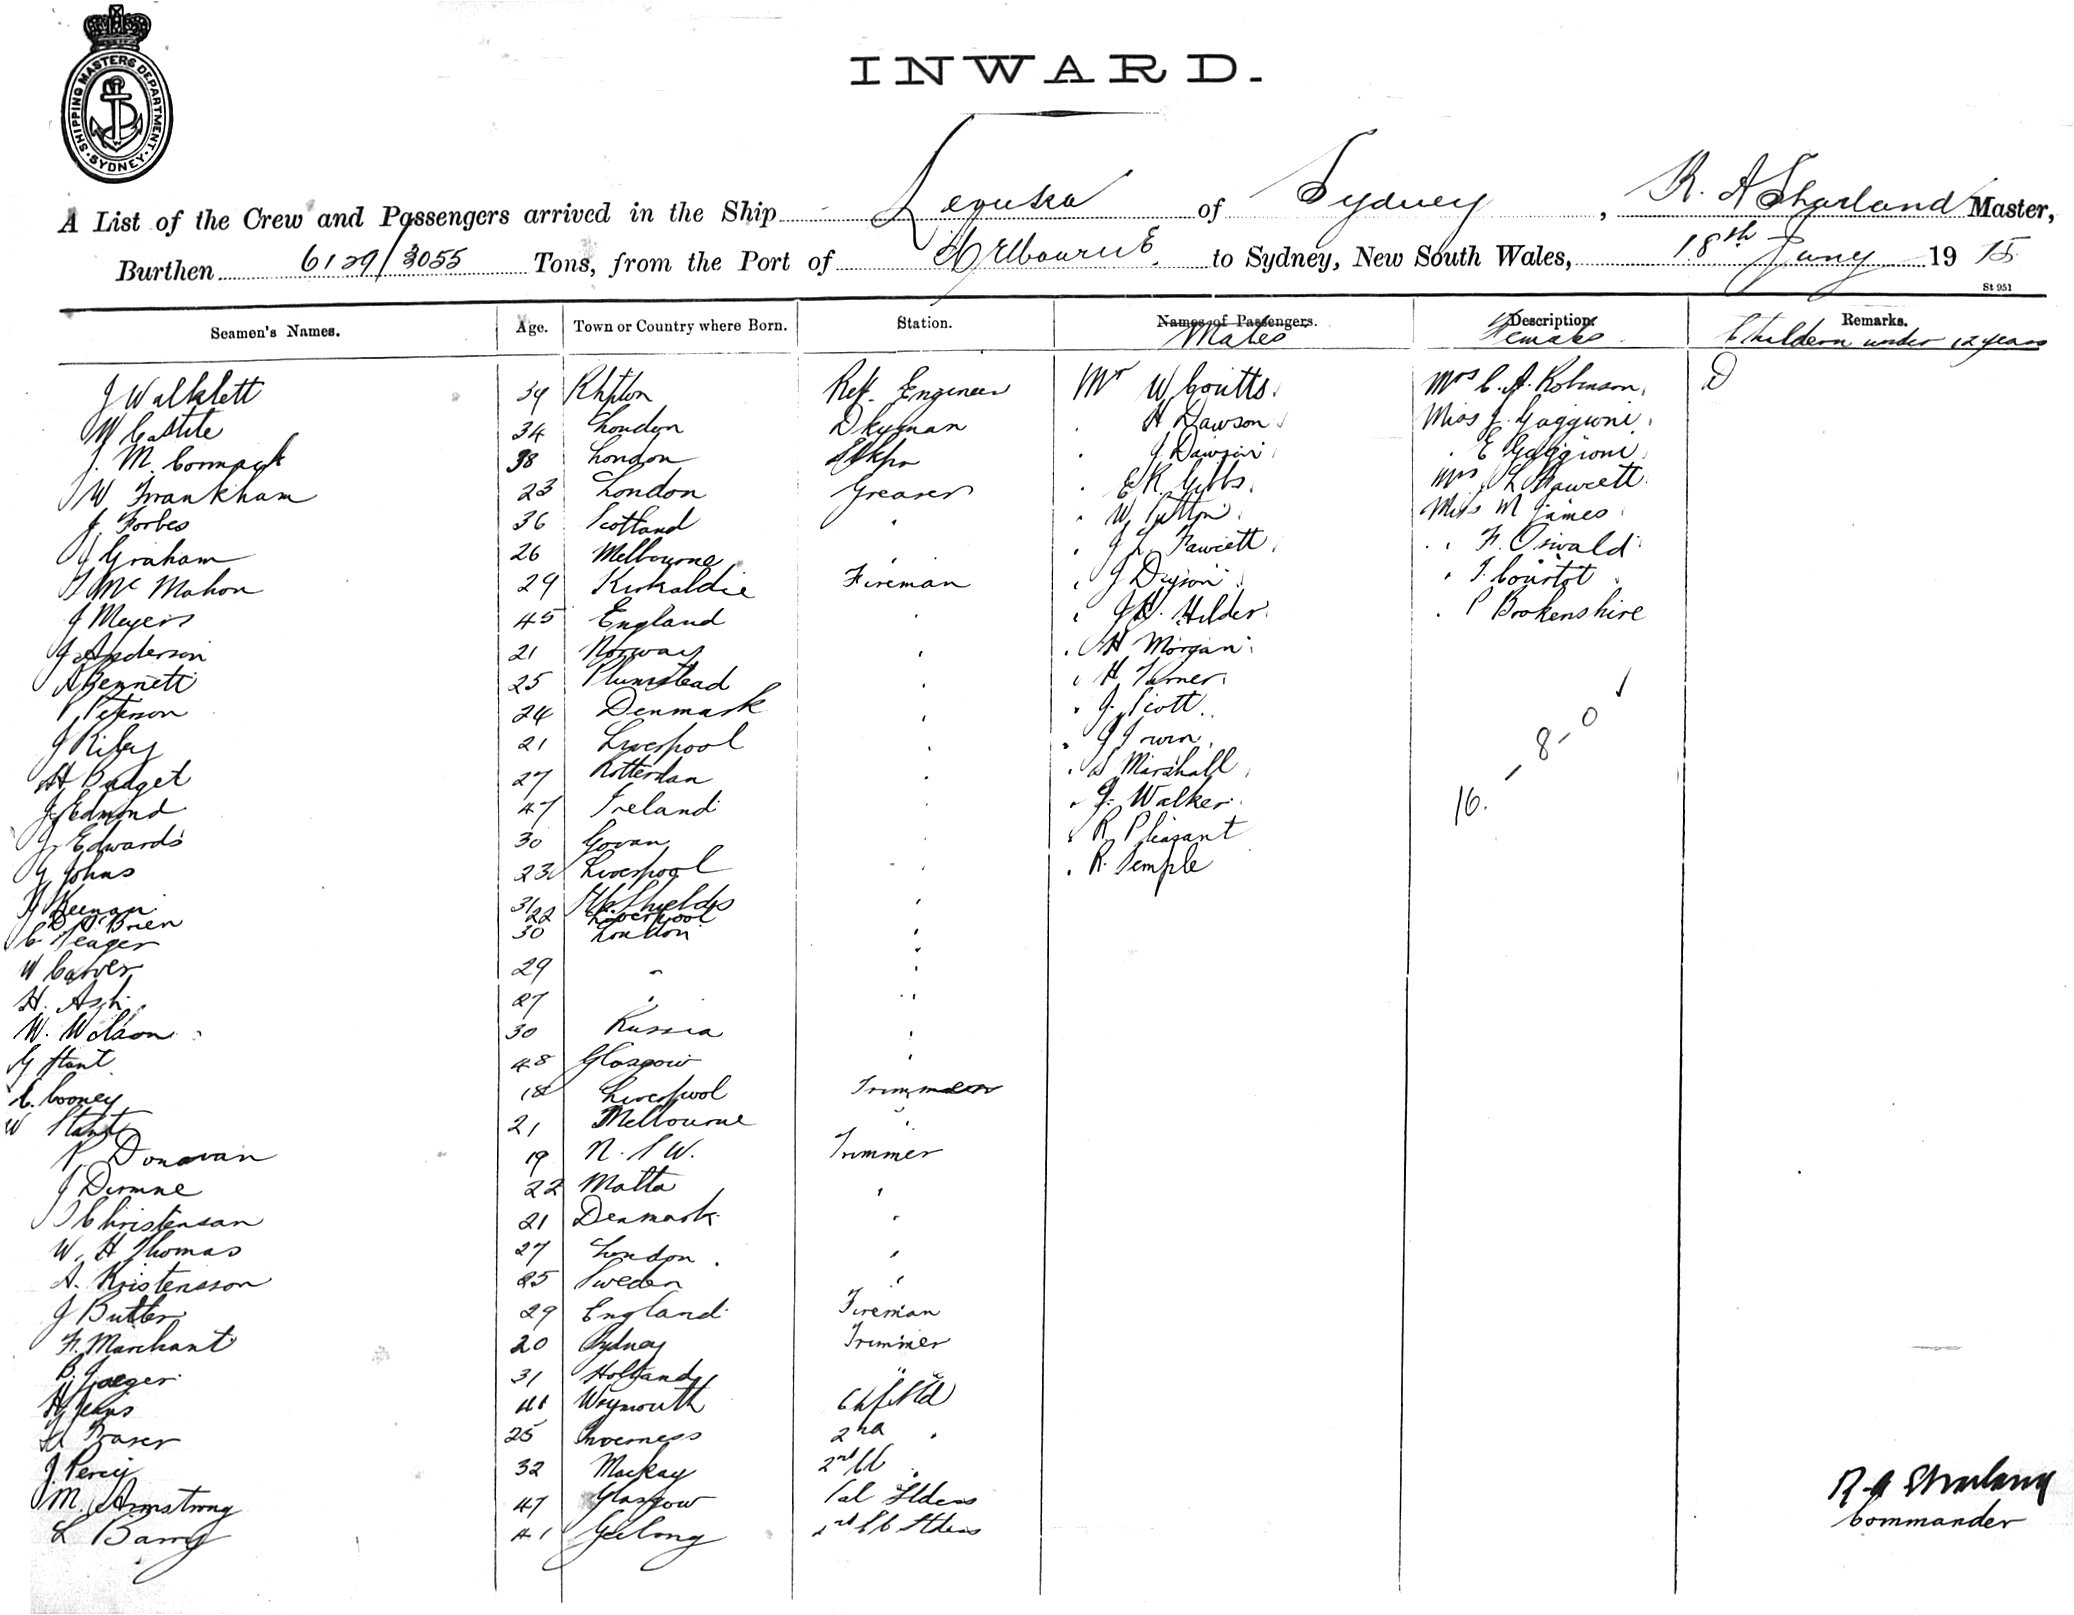 SHIPPING MASTERS DEPARTMENT · SYDNEY ·
INWARD.
A List of the Crew and Passengers arrived in the Ship Levuka of Sydney, R. A Sharland Master,
Burthen 6129/3055 Tons, from the Port of Melbourne to Sydney, New South Wales, 18th Jany 1915
St 951
Seamen's Names. Age. Town or Country where Born. Station. Names of Passengers. Description. Remarks.
Males Females Childern under 12 years
J Walklett 39 Ref. Engineer Mr W Coutts. Mrs C. A. Robinson.
W 34 London Dkyman H Dawson Miss J. Gaggioni
J. M. Cormack 38 London J Dawson E Gaggioni
W Frankham 23 London Greaser E R. Gibbs. Mrs L Fawcett
J. Forbes 36 Scotland " W Miss M James
J Graham 26 Melbourne " J L. Fawcett " F. Oswald
T Mc Mahon 29 Kirkaldie Fireman " J " T. Courtot
J Meyers 45 England " J H. Hilder " P Brokenshire
J Anderson 21 Norway " H Morgan
A Bennett 25 Plumstead " H Turner
P Peterson 24 Denmark " J. Scott
J Riley 21 Liverpool " J Irwin
H Badget 27 Rotterdan " S Marshall
J Edmond 47 Ireland " J. Walker 16. – 8 – 0
J Edwards 30 Govan " R Pleasant
G Johns 23 Liverpool " R. Temple
J Keenan 31 Shields "
D O'Brien 22 Liverpool
C Yeager 30 London "
W Carver 29 " "
H. Ash 27 " "
W. Wilson 30 Russia "
G Hant 48 Glasgow "
C. Cooney 18 Liverpool Trimmer
W 21 Melbourne "
P Donovan 19 N. S W. Trimmer
J 22 Malta "
J Christensan 21 Denmark "
W. H Thomas 27 London "
A. Kristensson 25 Sweden "
J Butler 29 England Fireman
F. Marchant 20 Sydney Trimmer
B. Jaeger 31 Holland "
H Jeans 41 Weymouth
A Fraser 25 Inverness 2nd "
J. Percy 32 Mackay 2nd
J M. Armstrong 47 Glasgow
L Barry 41 Geelong
R. A Sharland
Commander